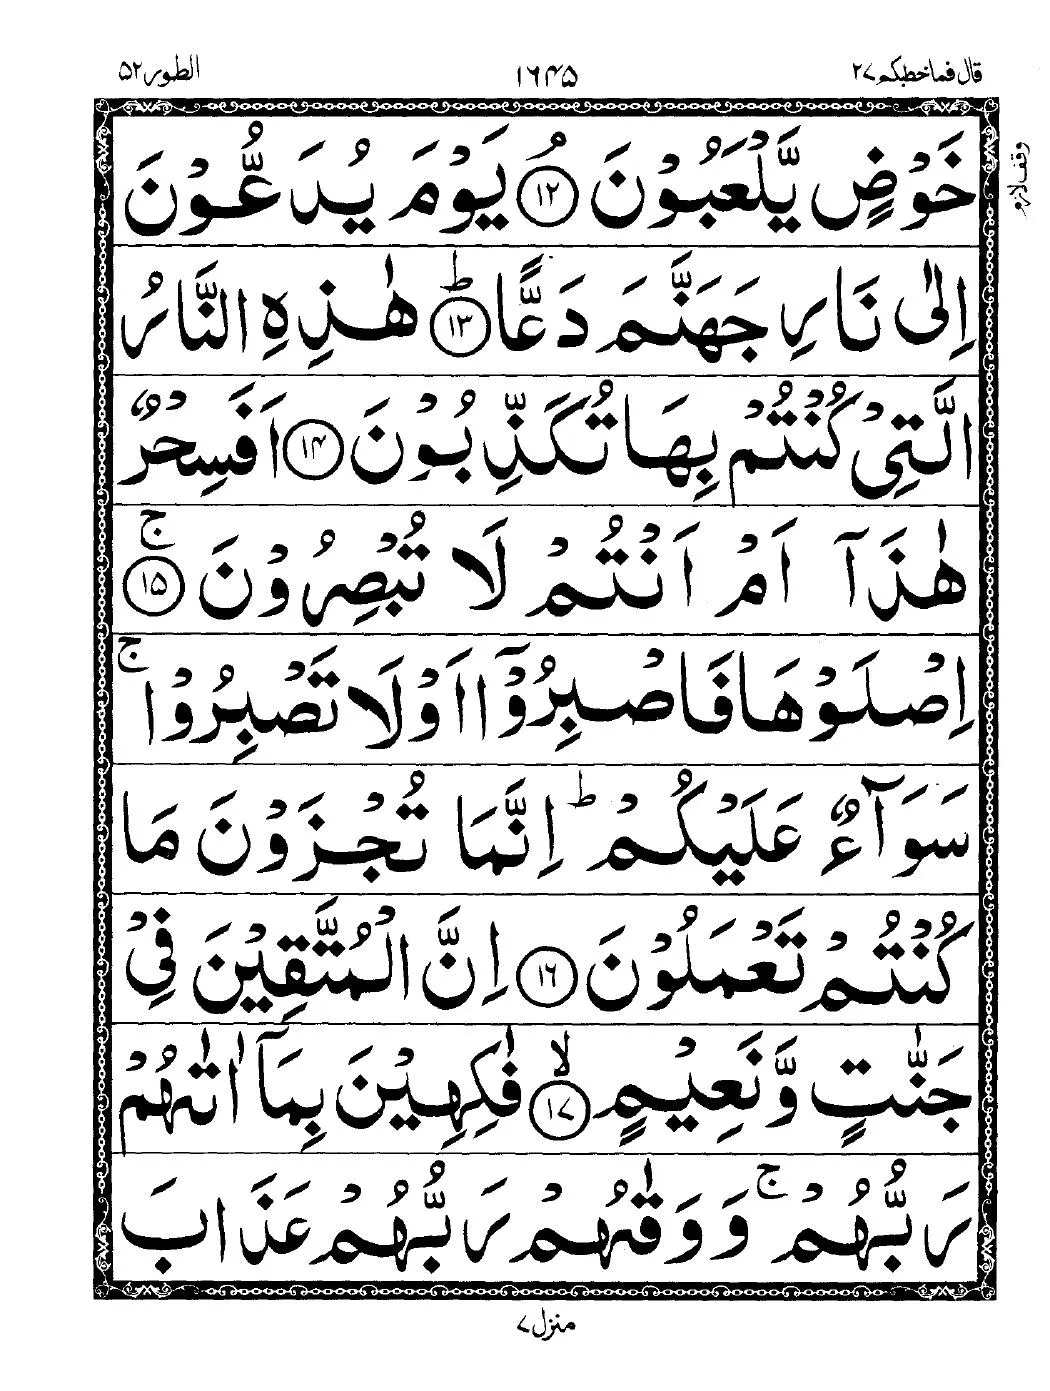 قال فما خطبکم ۲۷
۱۶۴۵
الطور ۵۲
وقف لازم
خَوْضٍ یَّلْعَبُوْنَ ۘ ﴿۱۲﴾ یَوْمَ یُدَعُّوْنَ
اِلٰی نَارِ جَهَنَّمَ دَعًّا ؕ ﴿۱۳﴾ هٰذِهِ النَّارُ
الَّتِیْ كُنْتُمْ بِهَا تُكَذِّبُوْنَ ﴿۱۴﴾ اَفَسِحْرٌ
هٰذَاۤ اَمْ اَنْتُمْ لَا تُبْصِرُوْنَ ۚ ﴿۱۵﴾
اِصْلَوْهَا فَاصْبِرُوْۤا اَوْ لَا تَصْبِرُوْا ۚ
سَوَآءٌ عَلَیْكُمْ ؕ اِنَّمَا تُجْزَوْنَ مَا
كُنْتُمْ تَعْمَلُوْنَ ﴿۱۶﴾ اِنَّ الْمُتَّقِیْنَ فِیْ
جَنّٰتٍ وَّنَعِیْمٍ ۙ ﴿۱۷﴾ فٰكِهِیْنَ بِمَاۤ اٰتٰىهُمْ
رَبُّهُمْ ۚ وَوَقٰىهُمْ رَبُّهُمْ عَذَابَ
منزل ۷